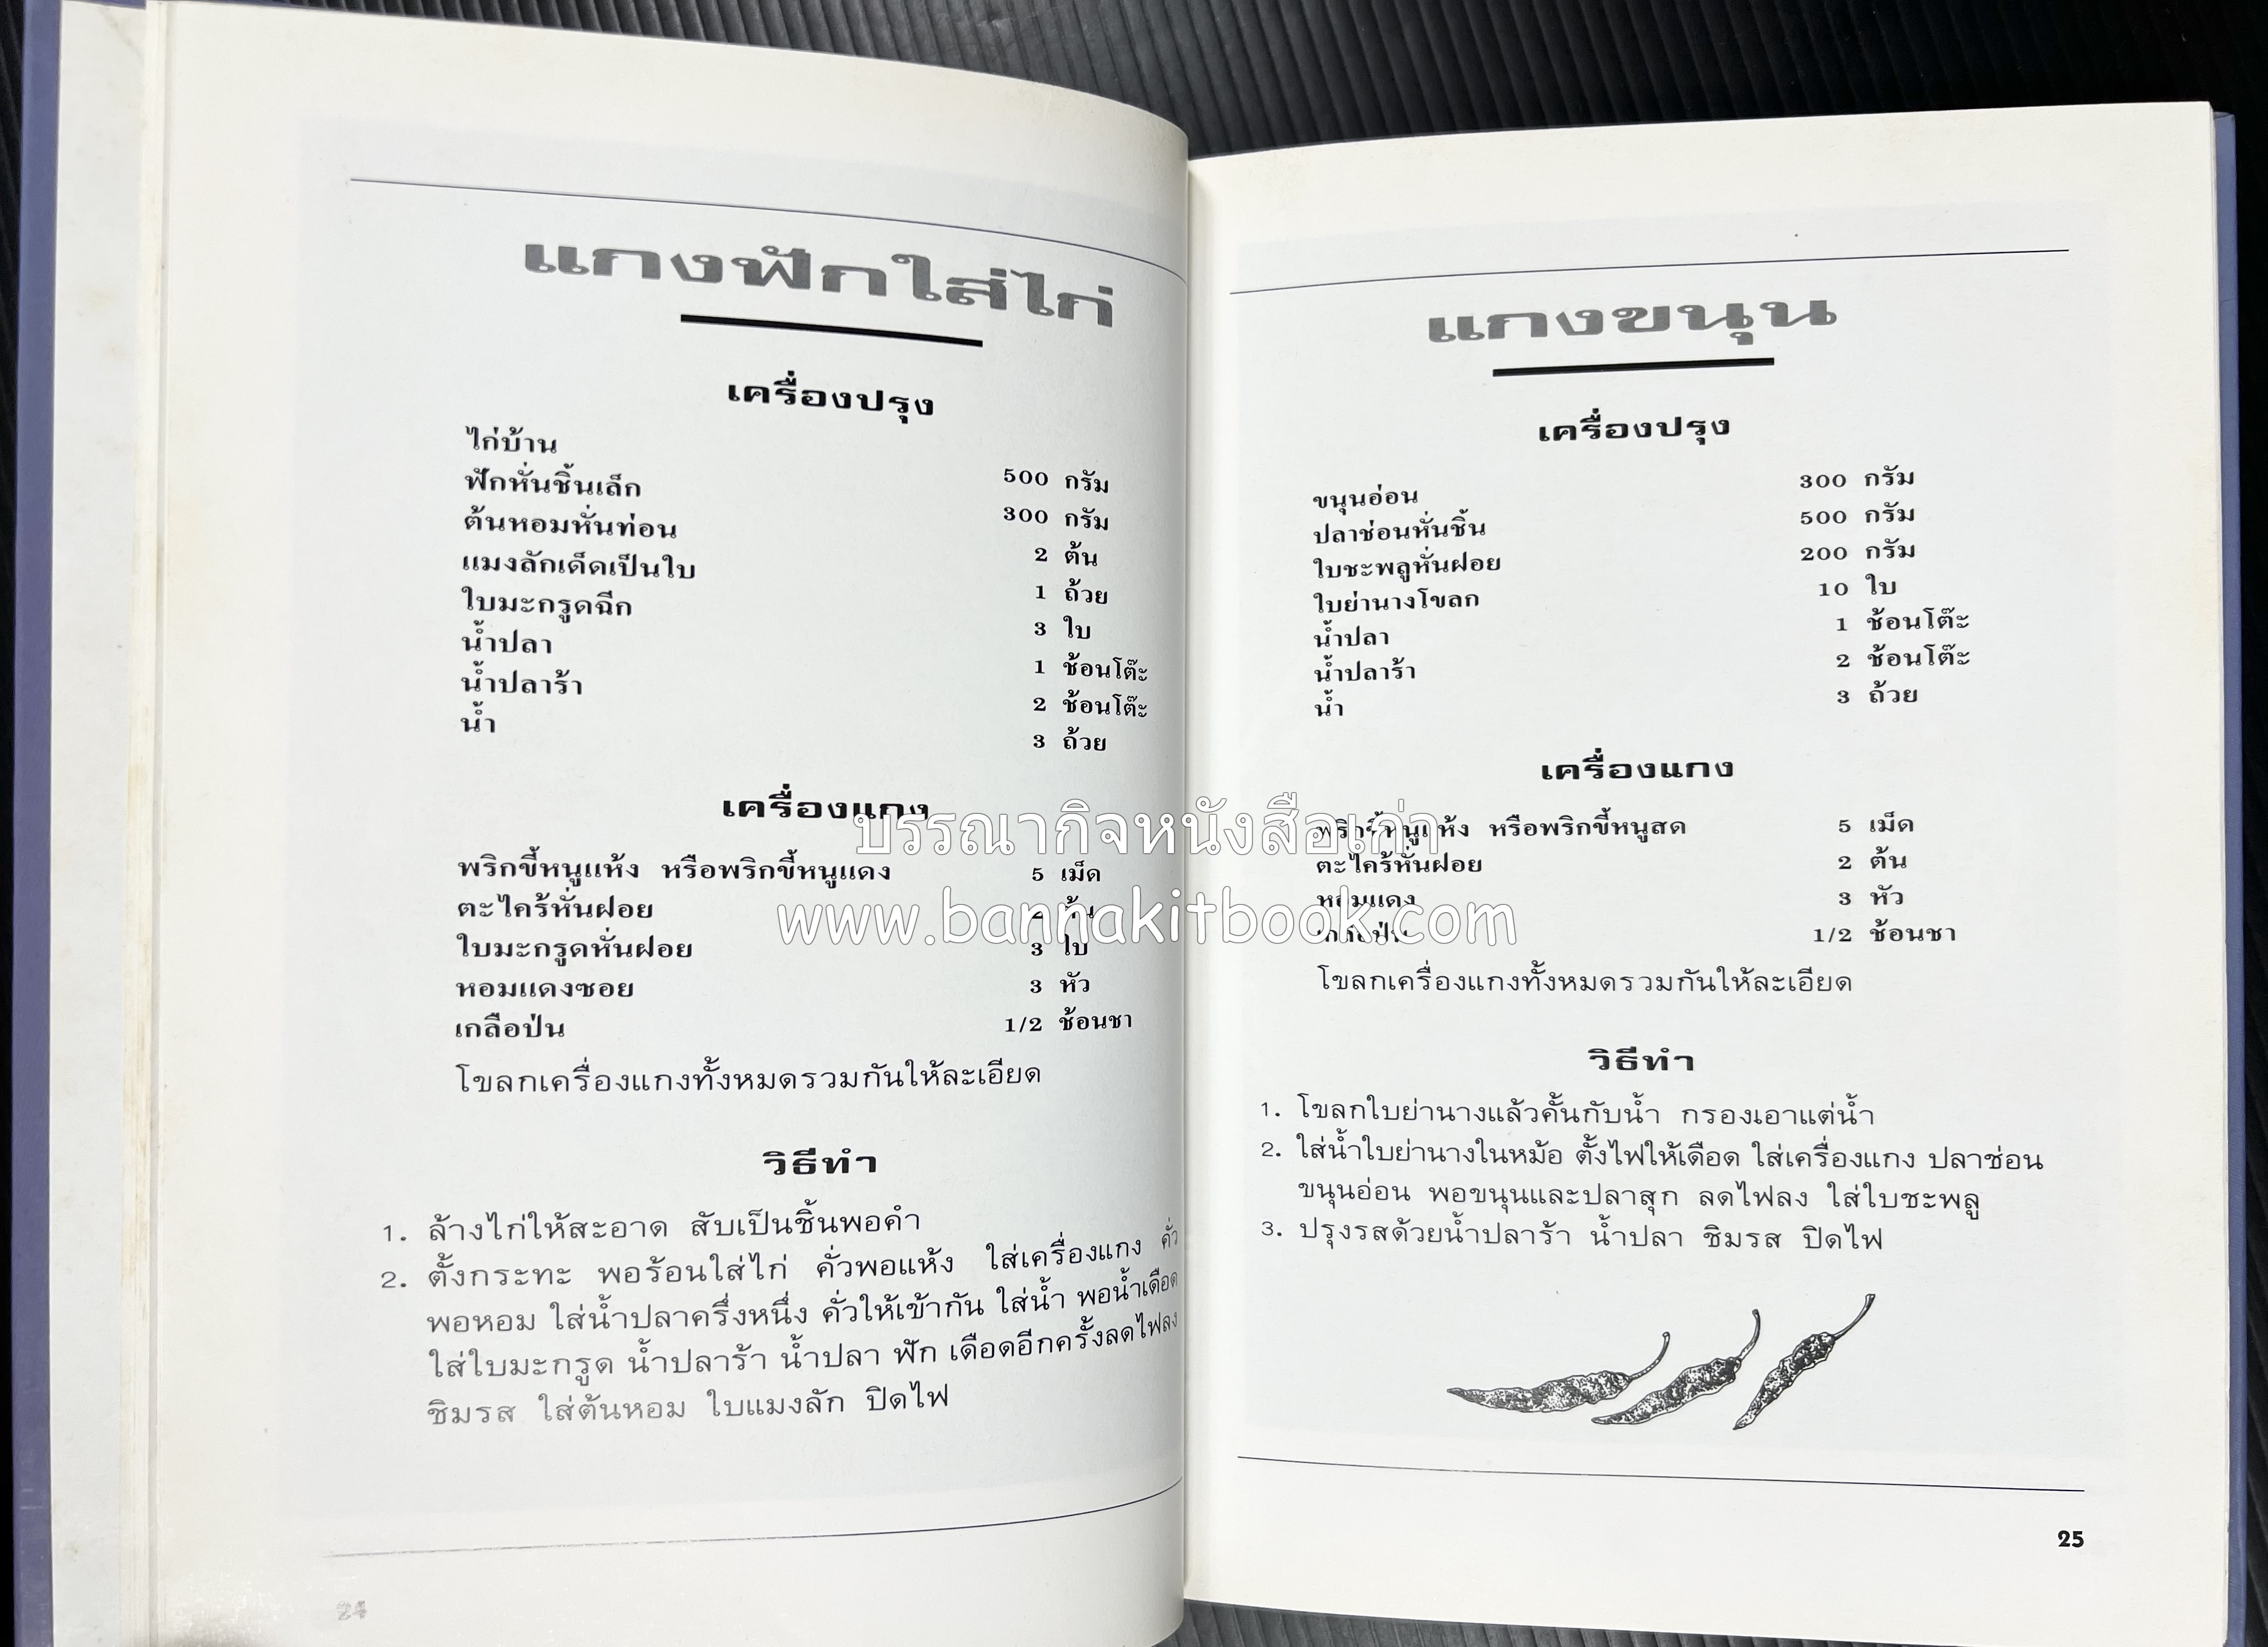 แกงฟักใส่ไก่
เครื่องปรุง
ไก่บ้าน 500 กรัม
ฟักหั่นชิ้นเล็ก 300 กรัม
ต้นหอมหั่นท่อน 2 ต้น
แมงลักเด็ดเป็นใบ 1 ถ้วย
ใบมะกรูดฉีก 3 ใบ
น้ำปลา 1 ช้อนโต๊ะ
น้ำปลาร้า 2 ช้อนโต๊ะ
น้ำ 3 ถ้วย
เครื่องแกง
พริกขี้หนูแห้ง หรือพริกขี้หนูแดง 5 เม็ด
ตะไคร้หั่นฝอย 2 ต้น
ใบมะกรูดหั่นฝอย 3 ใบ
หอมแดงซอย 3 หัว
เกลือป่น 1/2 ช้อนชา
โขลกเครื่องแกงทั้งหมดรวมกันให้ละเอียด
วิธีทำ
1. ล้างไก่ให้สะอาด สับเป็นชิ้นพอคำ
2. ตั้งกระทะ พอร้อนใส่ไก่ คั่วพอแห้ง ใส่เครื่องแกง คั่ว
พอหอม ใส่น้ำปลาครึ่งหนึ่ง คั่วให้เข้ากัน ใส่น้ำ พอน้ำเดือด
ใส่ใบมะกรูด น้ำปลาร้า น้ำปลา ฟัก เดือดอีกครั้งลดไฟลง
ชิมรส ใส่ต้นหอม ใบแมงลัก ปิดไฟ
24
แกงขนุน
เครื่องปรุง
ขนุนอ่อน 300 กรัม
ปลาช่อนหั่นชิ้น 500 กรัม
ใบชะพลูหั่นฝอย 200 กรัม
ใบย่านางโขลก 10 ใบ
น้ำปลา 1 ช้อนโต๊ะ
น้ำปลาร้า 2 ช้อนโต๊ะ
น้ำ 3 ถ้วย
เครื่องแกง
พริกขี้หนูแห้ง หรือพริกขี้หนูสด 5 เม็ด
ตะไคร้หั่นฝอย 2 ต้น
หอมแดง 3 หัว
เกลือป่น 1/2 ช้อนชา
โขลกเครื่องแกงทั้งหมดรวมกันให้ละเอียด
วิธีทำ
1. โขลกใบย่านางแล้วคั้นกับน้ำ กรองเอาแต่น้ำ
2. ใส่น้ำใบย่านางในหม้อ ตั้งไฟให้เดือด ใส่เครื่องแกง ปลาช่อน
ขนุนอ่อน พอขนุนและปลาสุก ลดไฟลง ใส่ใบชะพลู
3. ปรุงรสด้วยน้ำปลาร้า น้ำปลา ชิมรส ปิดไฟ
25
บรรณากิจหนังสือเก่า
www.bannakitbook.com